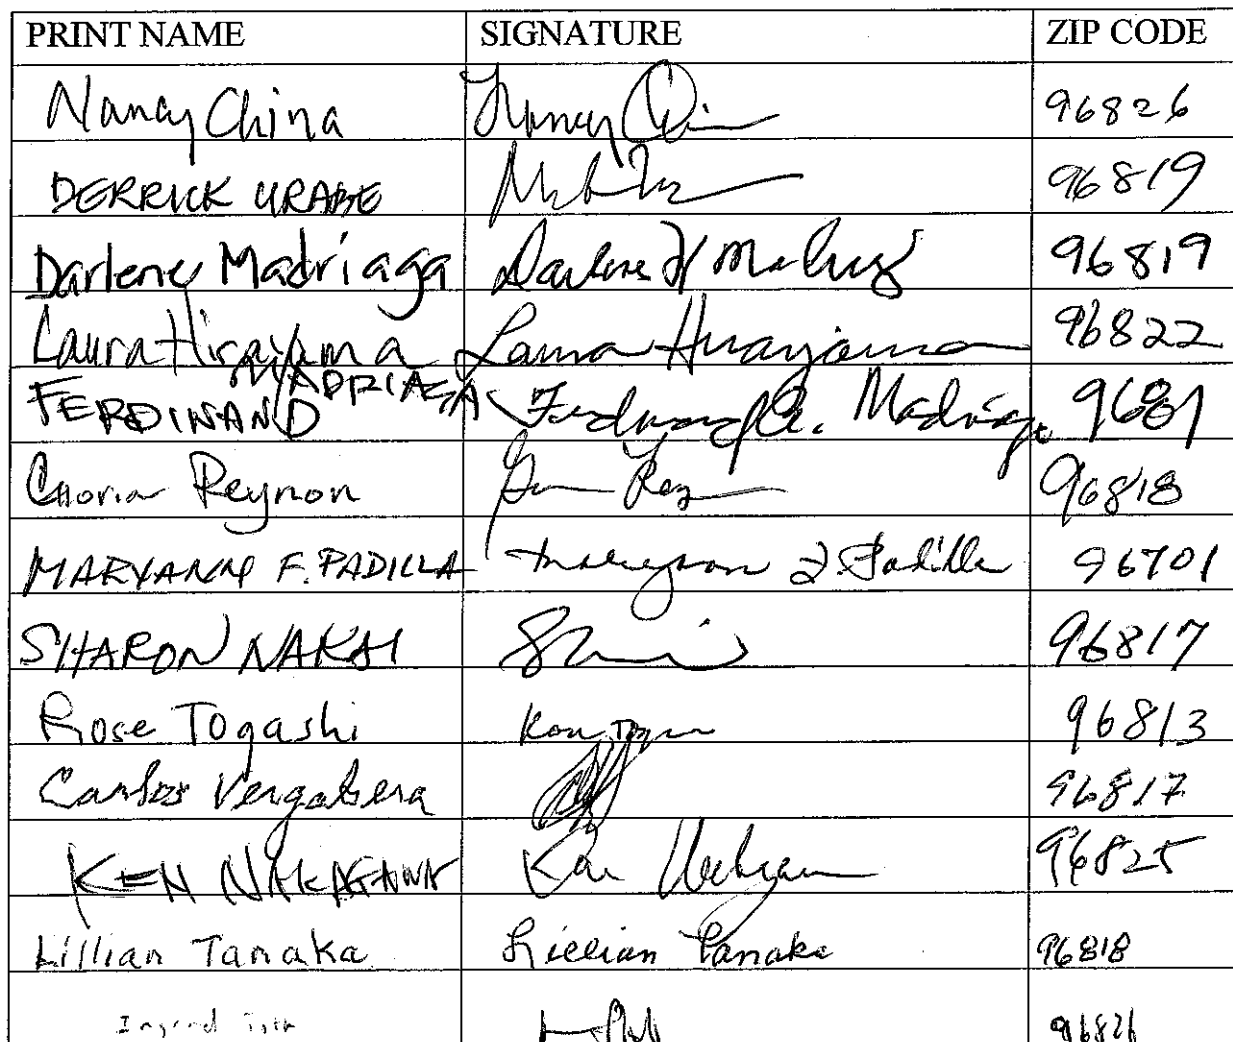 PRINT NAME SIGNATURE ZIP CODE
Nancy China Nancy Chi 96826
DERRICK URABE 96819
Darlene Madriaga Darlene 96819
Laura Hirayama Laura Hirayama 96822
FERDINAND MADRIAGA Ferdinand Madriaga 9681
Gloria Reynon 96818
MARYANN F. PADILLA Maryann F. Padilla 96701
SHARON NAKAI 96817
Rose Togashi 96813
Carlos Vergabera 96817
KEN NAKAGAWA Ken 96825
Lillian Tanaka Lillian Tanaka 96818
Ingrid 96826